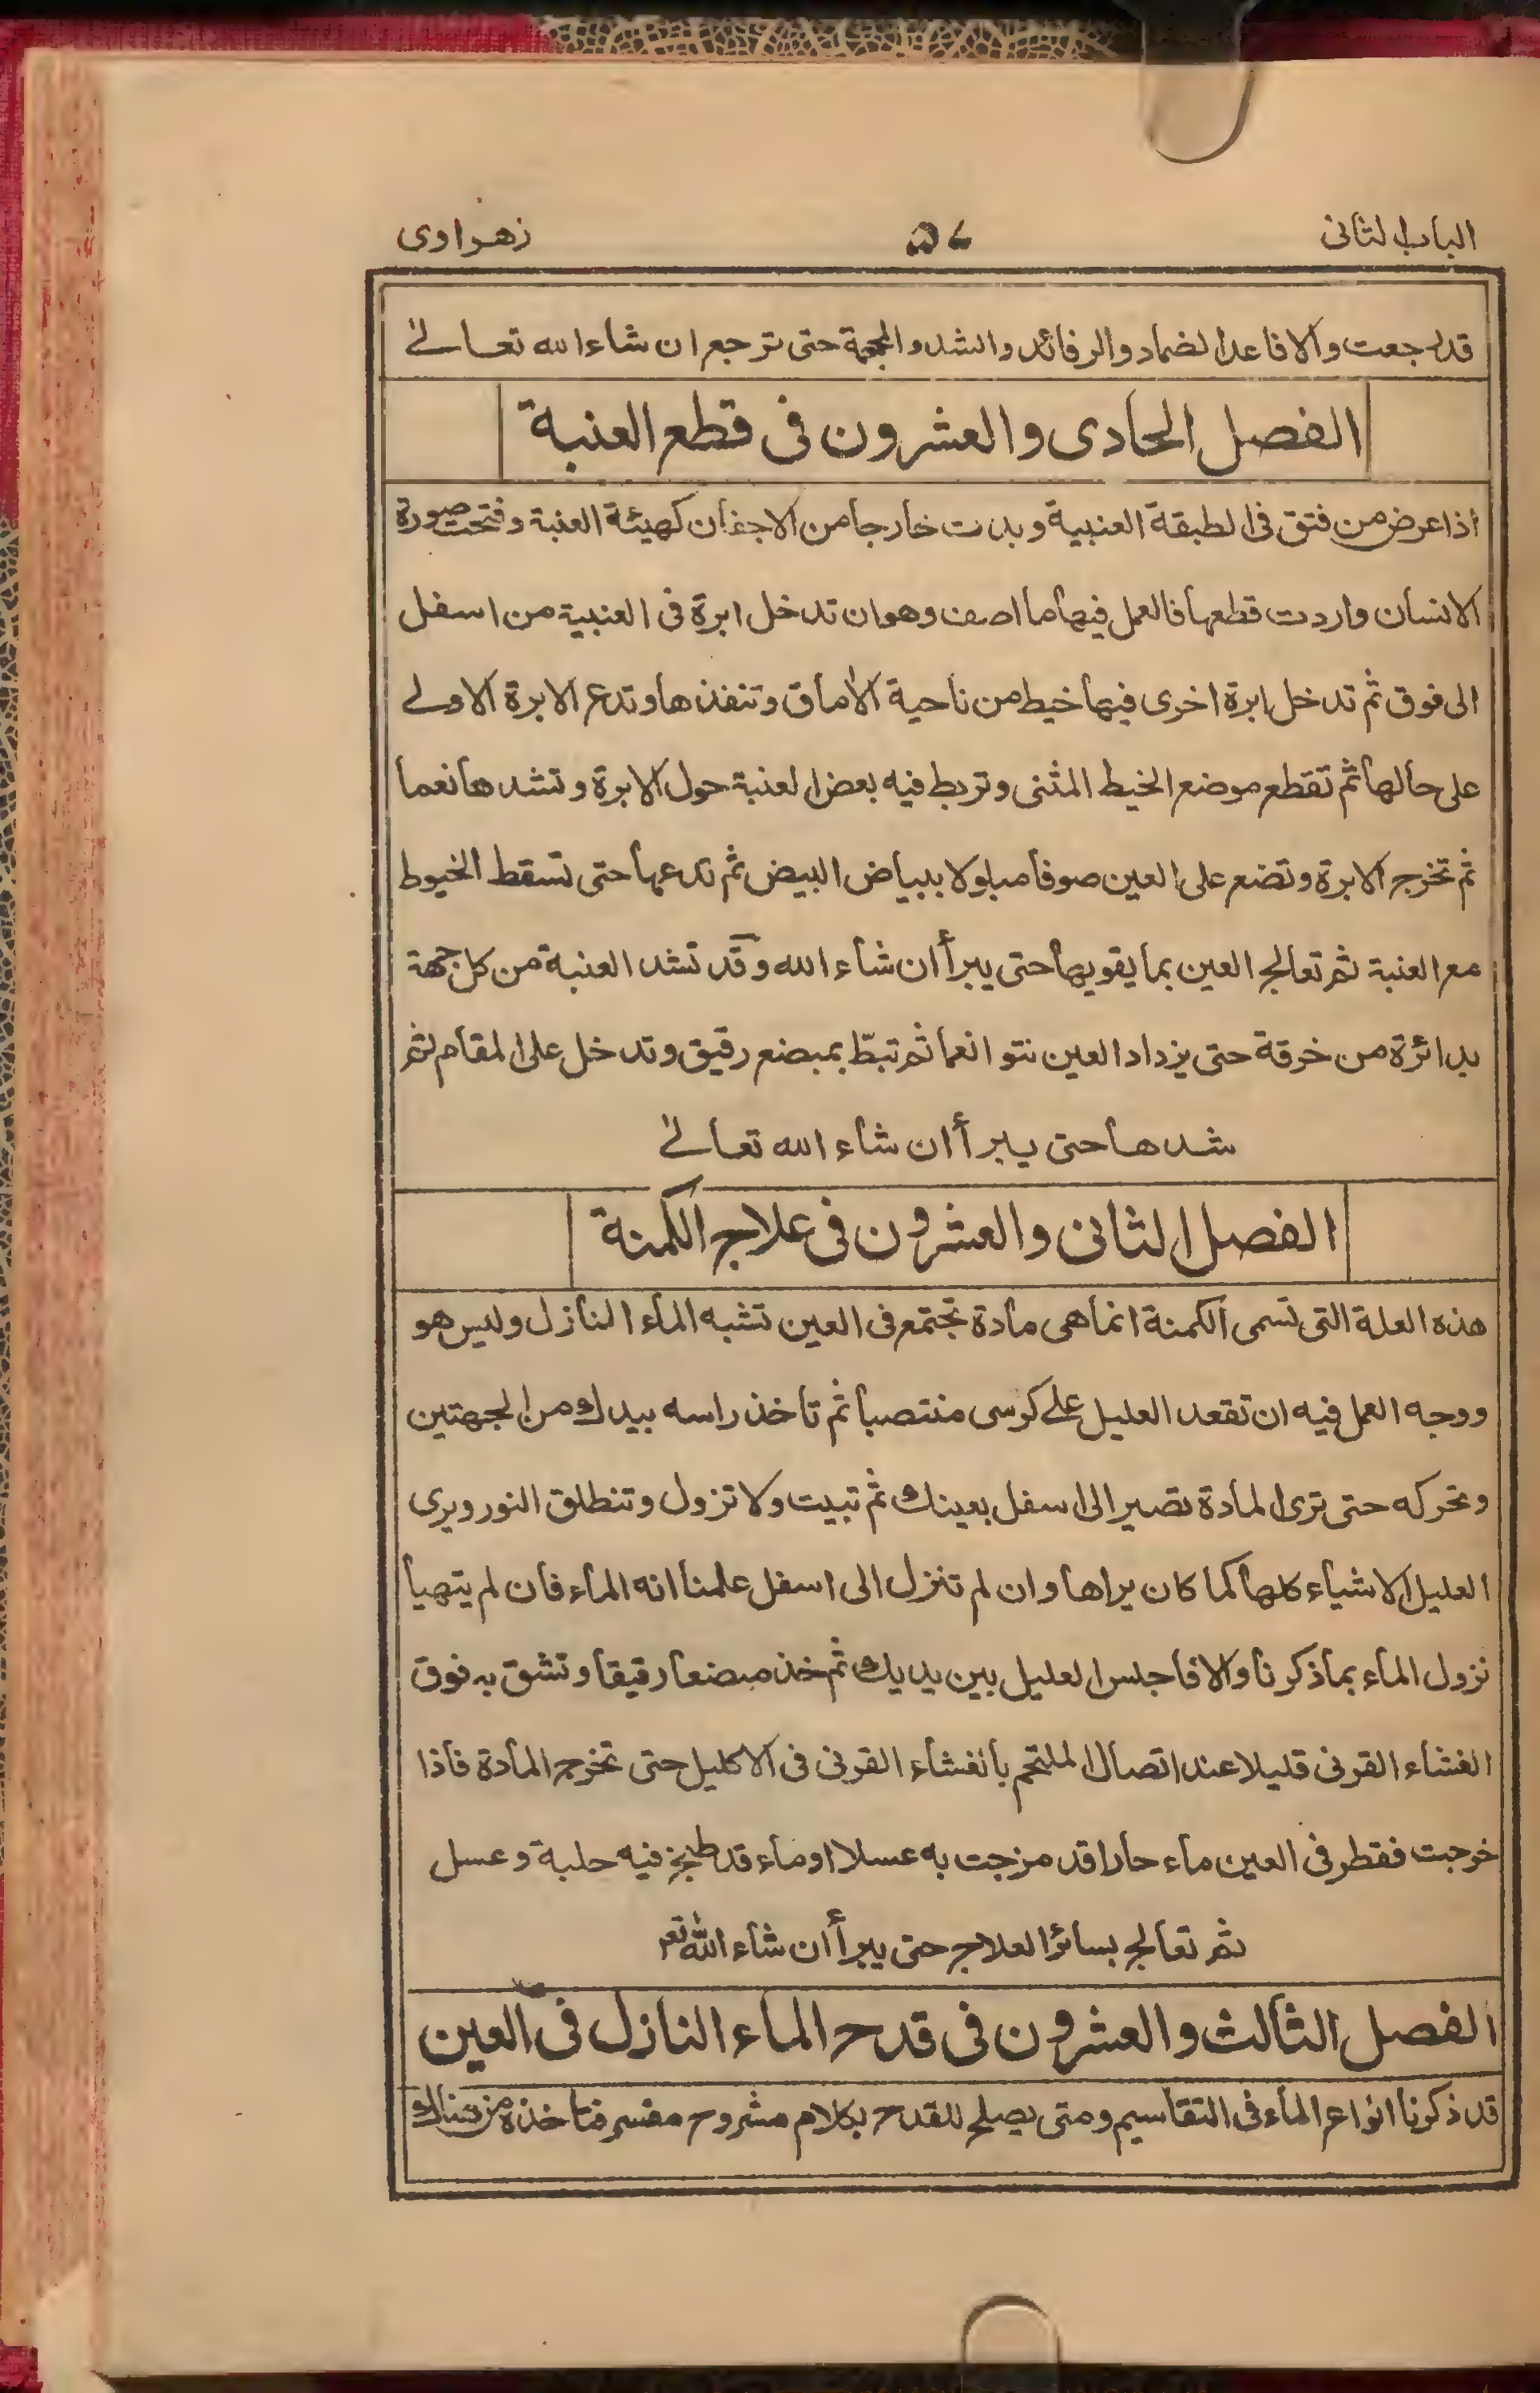 الباب الثانى
زهراوى
قد رجعت والا فاعد الضماد والرفائد والشد والمحجمة حتى ترجع ان شاء الله تعالى
الفصل الحادى والعشرون فى قطع العنبة
اذا عرض من فتق فى الطبقة العنبية وبدت خارجا من الاجفان كهيئة العنبة وفتحت صورة
الانسان واردت قطعها فالعمل فيها ما اصف وهو ان تدخل ابرة فى العنبية من اسفل
الى فوق ثم تدخل ابرة اخرى فيها خيط من ناحية الأماق وتنفذها وتدع الابرة الاولى
على حالها ثم تقطع موضع الخيط المثنى وتربط فيه بعض العنبة حول الابرة وتشدها نعما
ثم تخرج الابرة وتضع على العين صوفا مبلولا ببياض البيض ثم تدعها حتى تسقط الخيوط
مع العنبة ثم تعالج العين بما يقويها حتى يبرأ ان شاء الله وقد تشد العنبة من كل جهة
بدائرة من خرقة حتى يزداد العين نتوا نعما ثم تبطّ بمبضع رقيق وتدخل على المقام ثم
شدها حتى يبرأ ان شاء الله تعالى
الفصل الثانى والعشرون فى علاج الكمنة
هذه العلة التى تسمى الكمنة انما هى مادة تجتمع فى العين تشبه الماء النازل وليس هو
ووجه العمل فيه ان تقعد العليل على كرسى منتصبا ثم تاخذ راسه بيدك من الجهتين
وتحركه حتى ترى المادة تصير الى اسفل بعينك ثم تبيت ولا تزول وتنطلق النور ويرى
العليل الاشياء كلها كما كان يراها وان لم تنزل الى اسفل علمنا انه الماء فان لم يتهيا
نزول الماء بما ذكرنا والا فاجلس العليل بين يديك ثم خذ مبضعا رقيقا وتشق به فوق
الغشاء القرنى قليلا عند اتصال الملتحم بالغشاء القرنى فى الاكليل حتى تخرج المادة فاذا
خرجت فقطر فى العين ماء حارا قد مزجت به عسلا او ماء قد طبخ فيه حلبة وعسل
ثم تعالج بسائر العلاج حتى يبرأ ان شاء الله تعه
الفصل الثالث والعشرون فى قدح الماء النازل فى العين
قد ذكرنا انواع الماء فى التقاسيم ومتى يصلح للقدح بكلام مشروح مفسر فتاخذه من هنالك